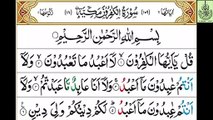 سُورَةُ الْكٰفِرُونَ مَكِّيَّةٌ
بِسْمِ اللهِ الرَّحْمٰنِ الرَّحِيْمِ
قُلْ يٰۤاَيُّهَا الْكٰفِرُوْنَ ۙ لَاۤ اَعْبُدُ مَا تَعْبُدُوْنَ ۙ وَلَاۤ
اَنْتُمْ عٰبِدُوْنَ مَاۤ اَعْبُدُ ۚ وَلَاۤ اَنَا عَابِدٌ مَّا عَبَدْتُّمْ ۙ وَلَاۤ
اَنْتُمْ عٰبِدُوْنَ مَاۤ اَعْبُدُ ؕ لَكُمْ دِيْنُكُمْ وَلِيَ دِيْنِ